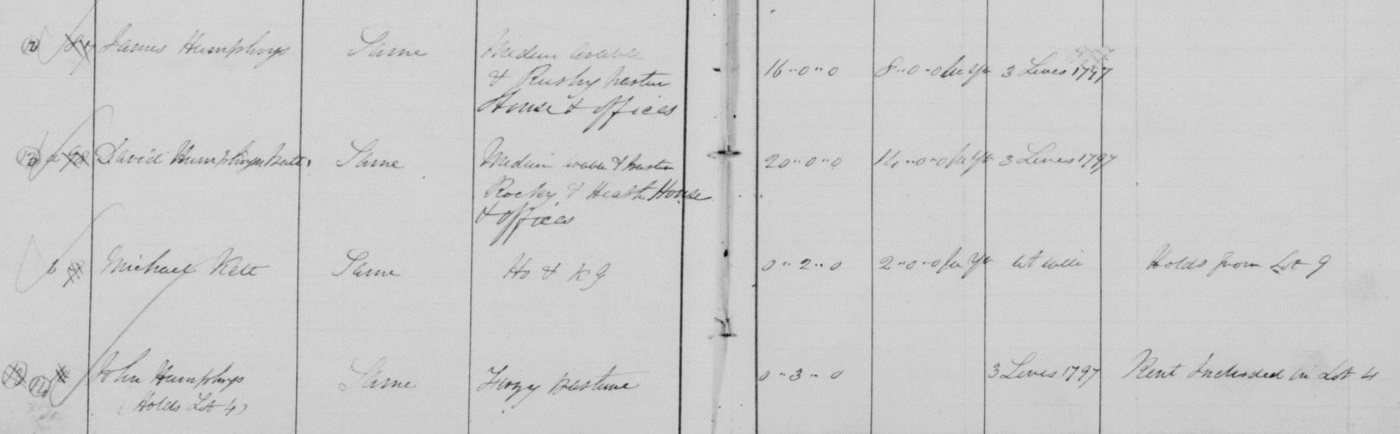 12 James Humphrys Same Medium arable 16..0..0 8..0..0 per Yr 3 Lives 1797
& Rushy pasture
House & offices
13 David Humphrys Same Medium arable & pasture 20..0..0 14..0..0 per Yr 3 Lives 1797
Rocky & Heath House
& offices
Michael Same Ho & K G 0..2..0 2..0..0 per Yr at will Holds from Lot 9
John Humphrys Same Furzy Pasture 0..3..0 3 Lives 1797 Rent Included in Lot 4
(Holds Lot 4)